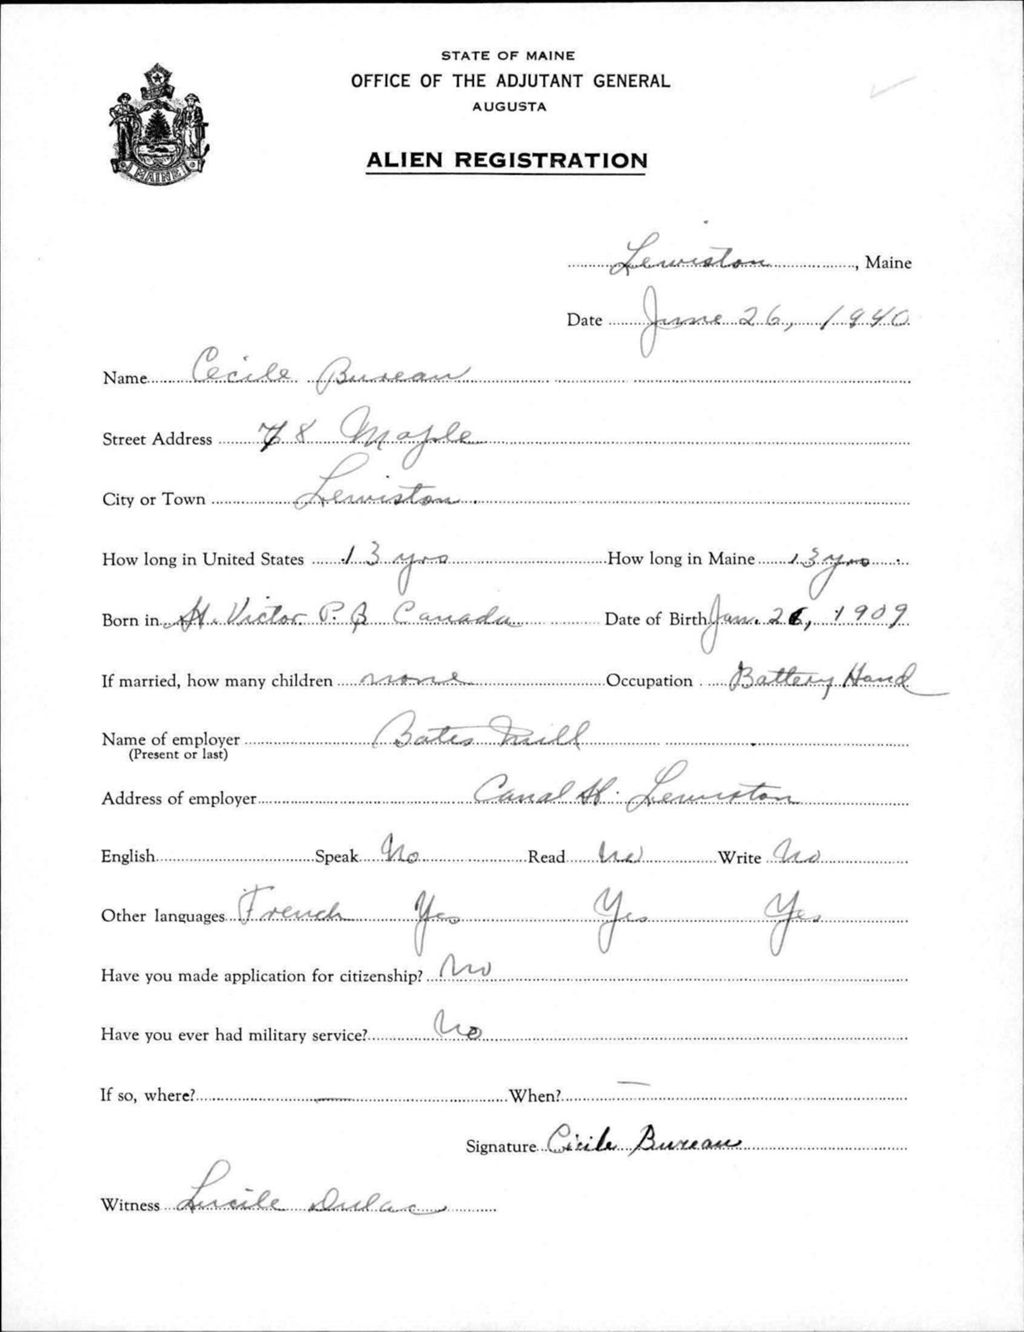 STATE OF MAINE
OFFICE OF THE ADJUTANT GENERAL
AUGUSTA
ALIEN REGISTRATION
MAINE
Lewiston, Maine
Date June 26, 1940
Name Cecile Bureau
Street Address 78 Maple
City or Town Lewiston.
How long in United States 13 yrs How long in Maine 13 yrs
Born in St. Victor P.Q Canada Date of Birth Jan. 26, 1909
If married, how many children none Occupation Battery Hand
Name of employer Bates Mill
(Present or last)
Address of employer Canal St. Lewiston
English Speak No Read No Write No
Other languages French Yes Yes Yes
Have you made application for citizenship? No
Have you ever had military service? No
If so, where? — When? —
Signature Cécile Bureau
Witness Lucile Dulac